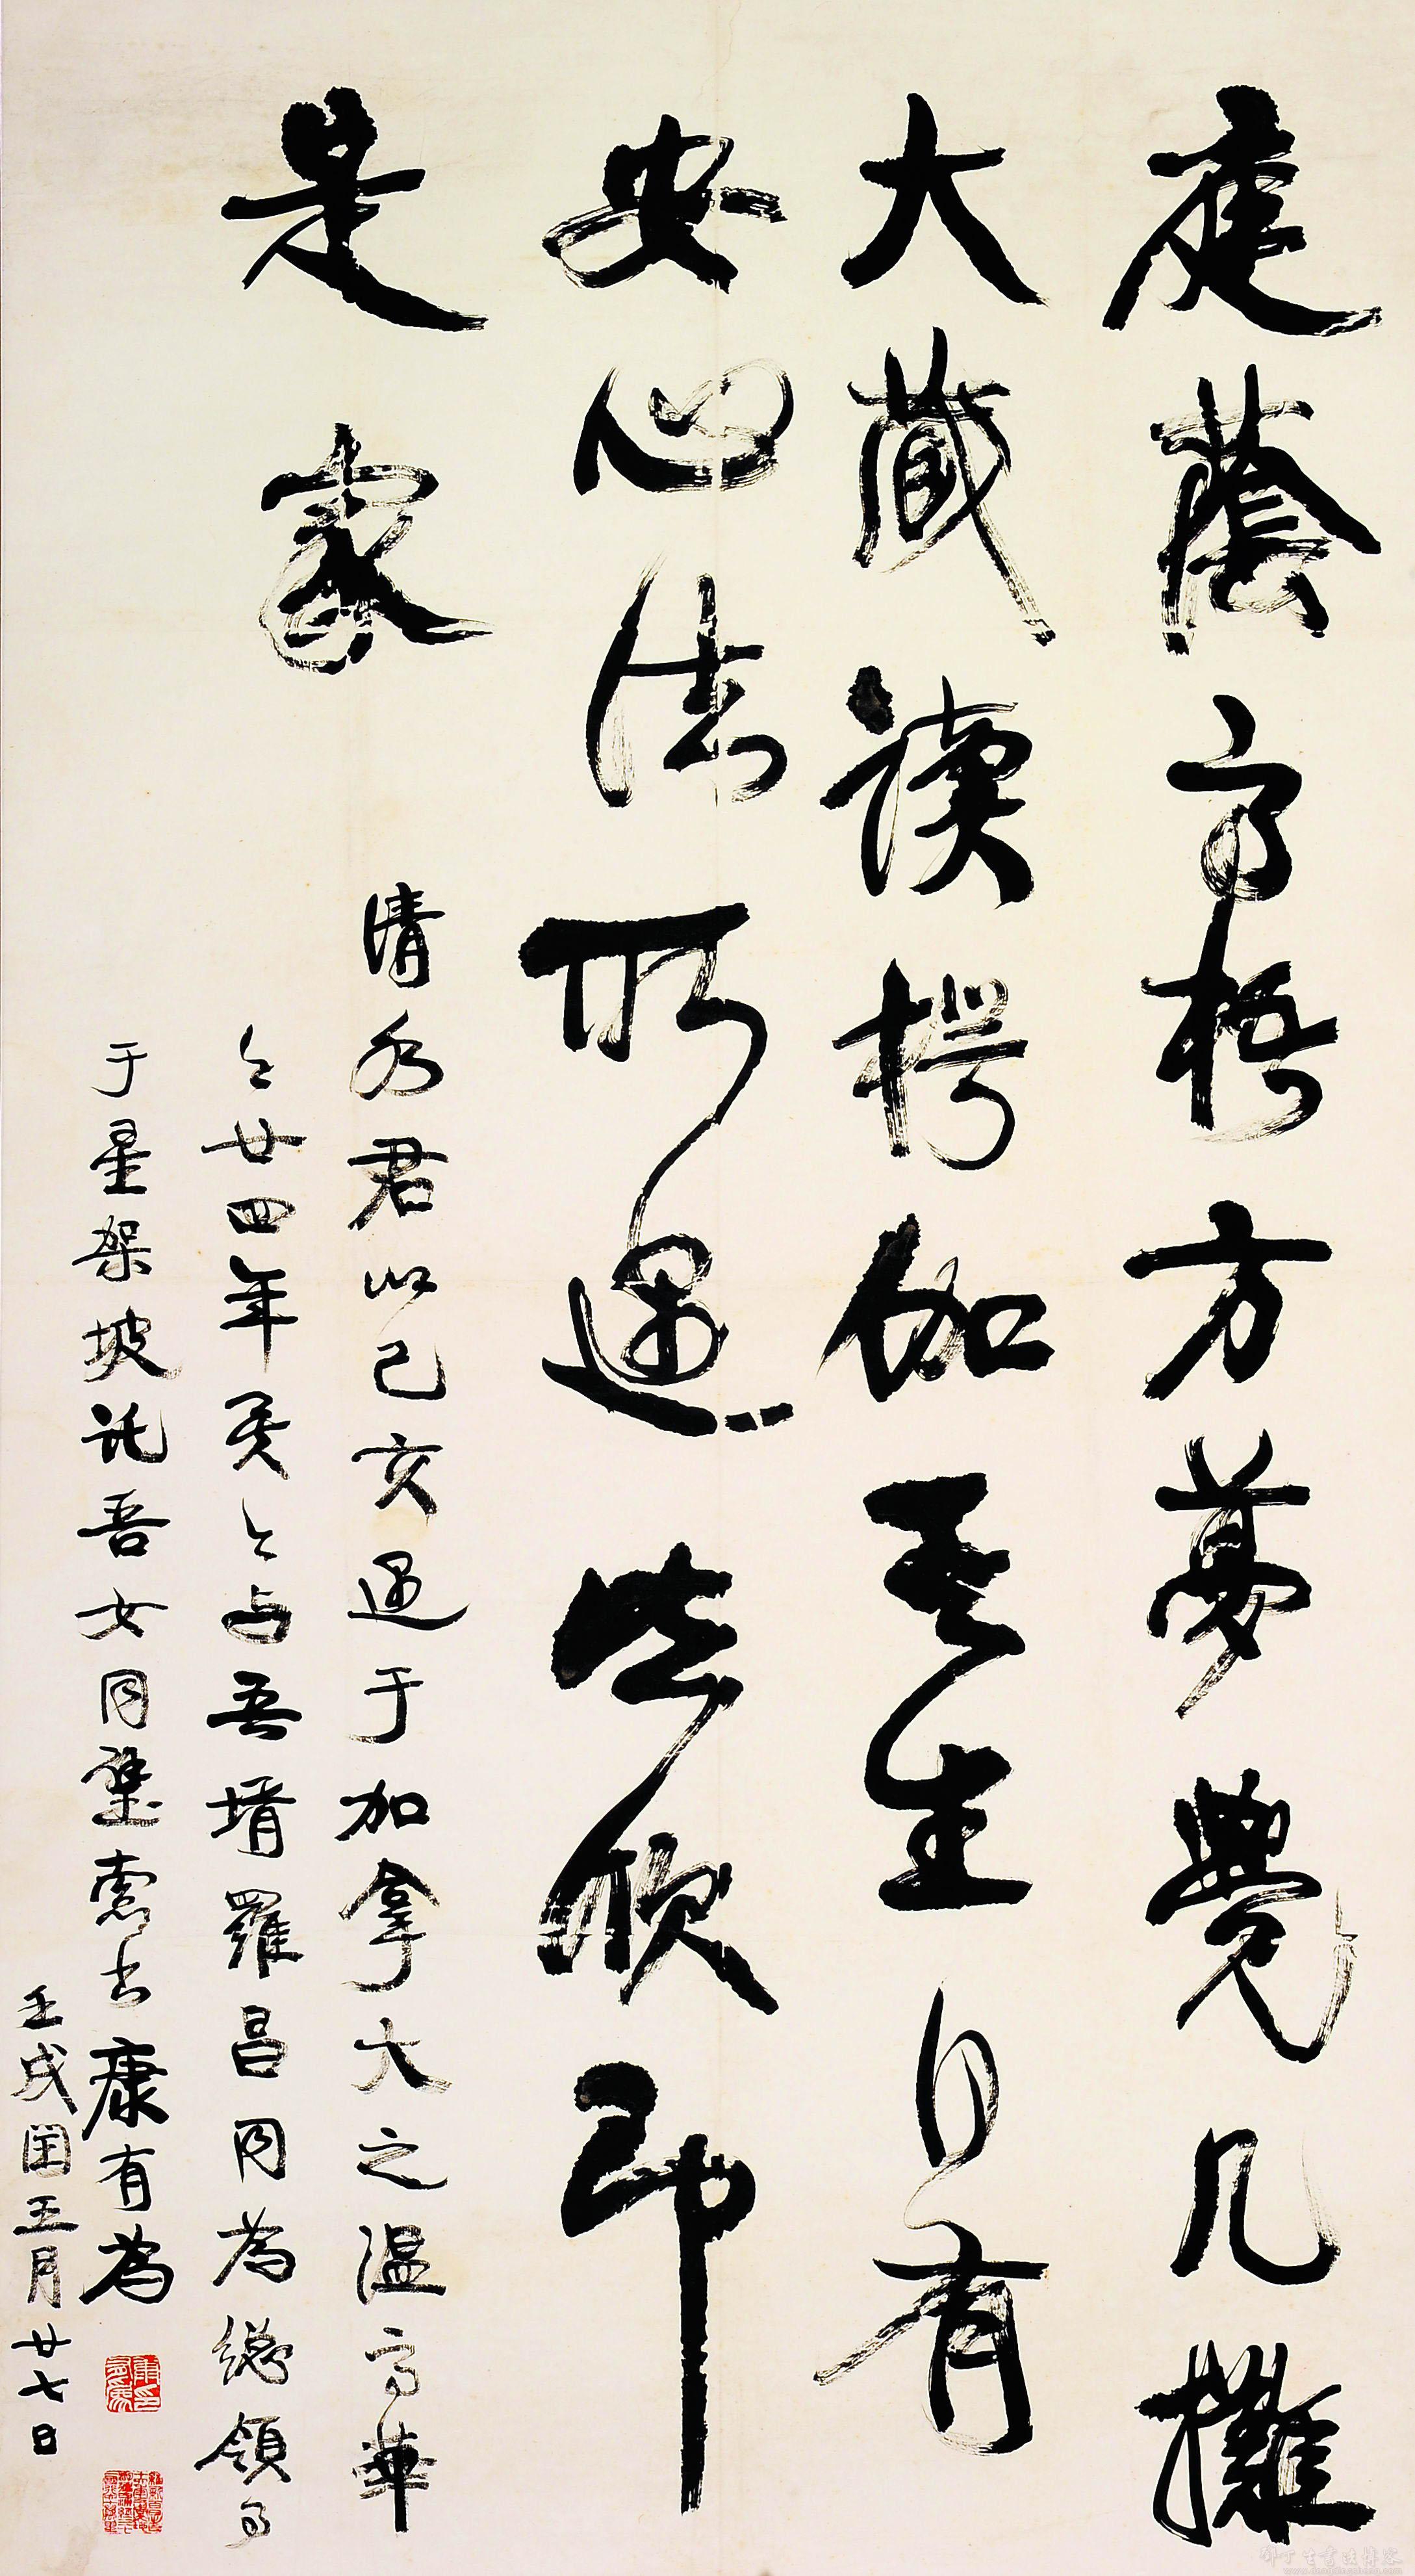 庭蔭高梧方夢覺几攤
大藏讀楞伽無生自有
安心法所遇皆欣即
是家
清水君以己亥遇于加拿大之温高華
今廿四年矣今与吾壻羅昌同為總領事
于星架坡託吾女同璧索書康有為
壬戌閏五月廿七日